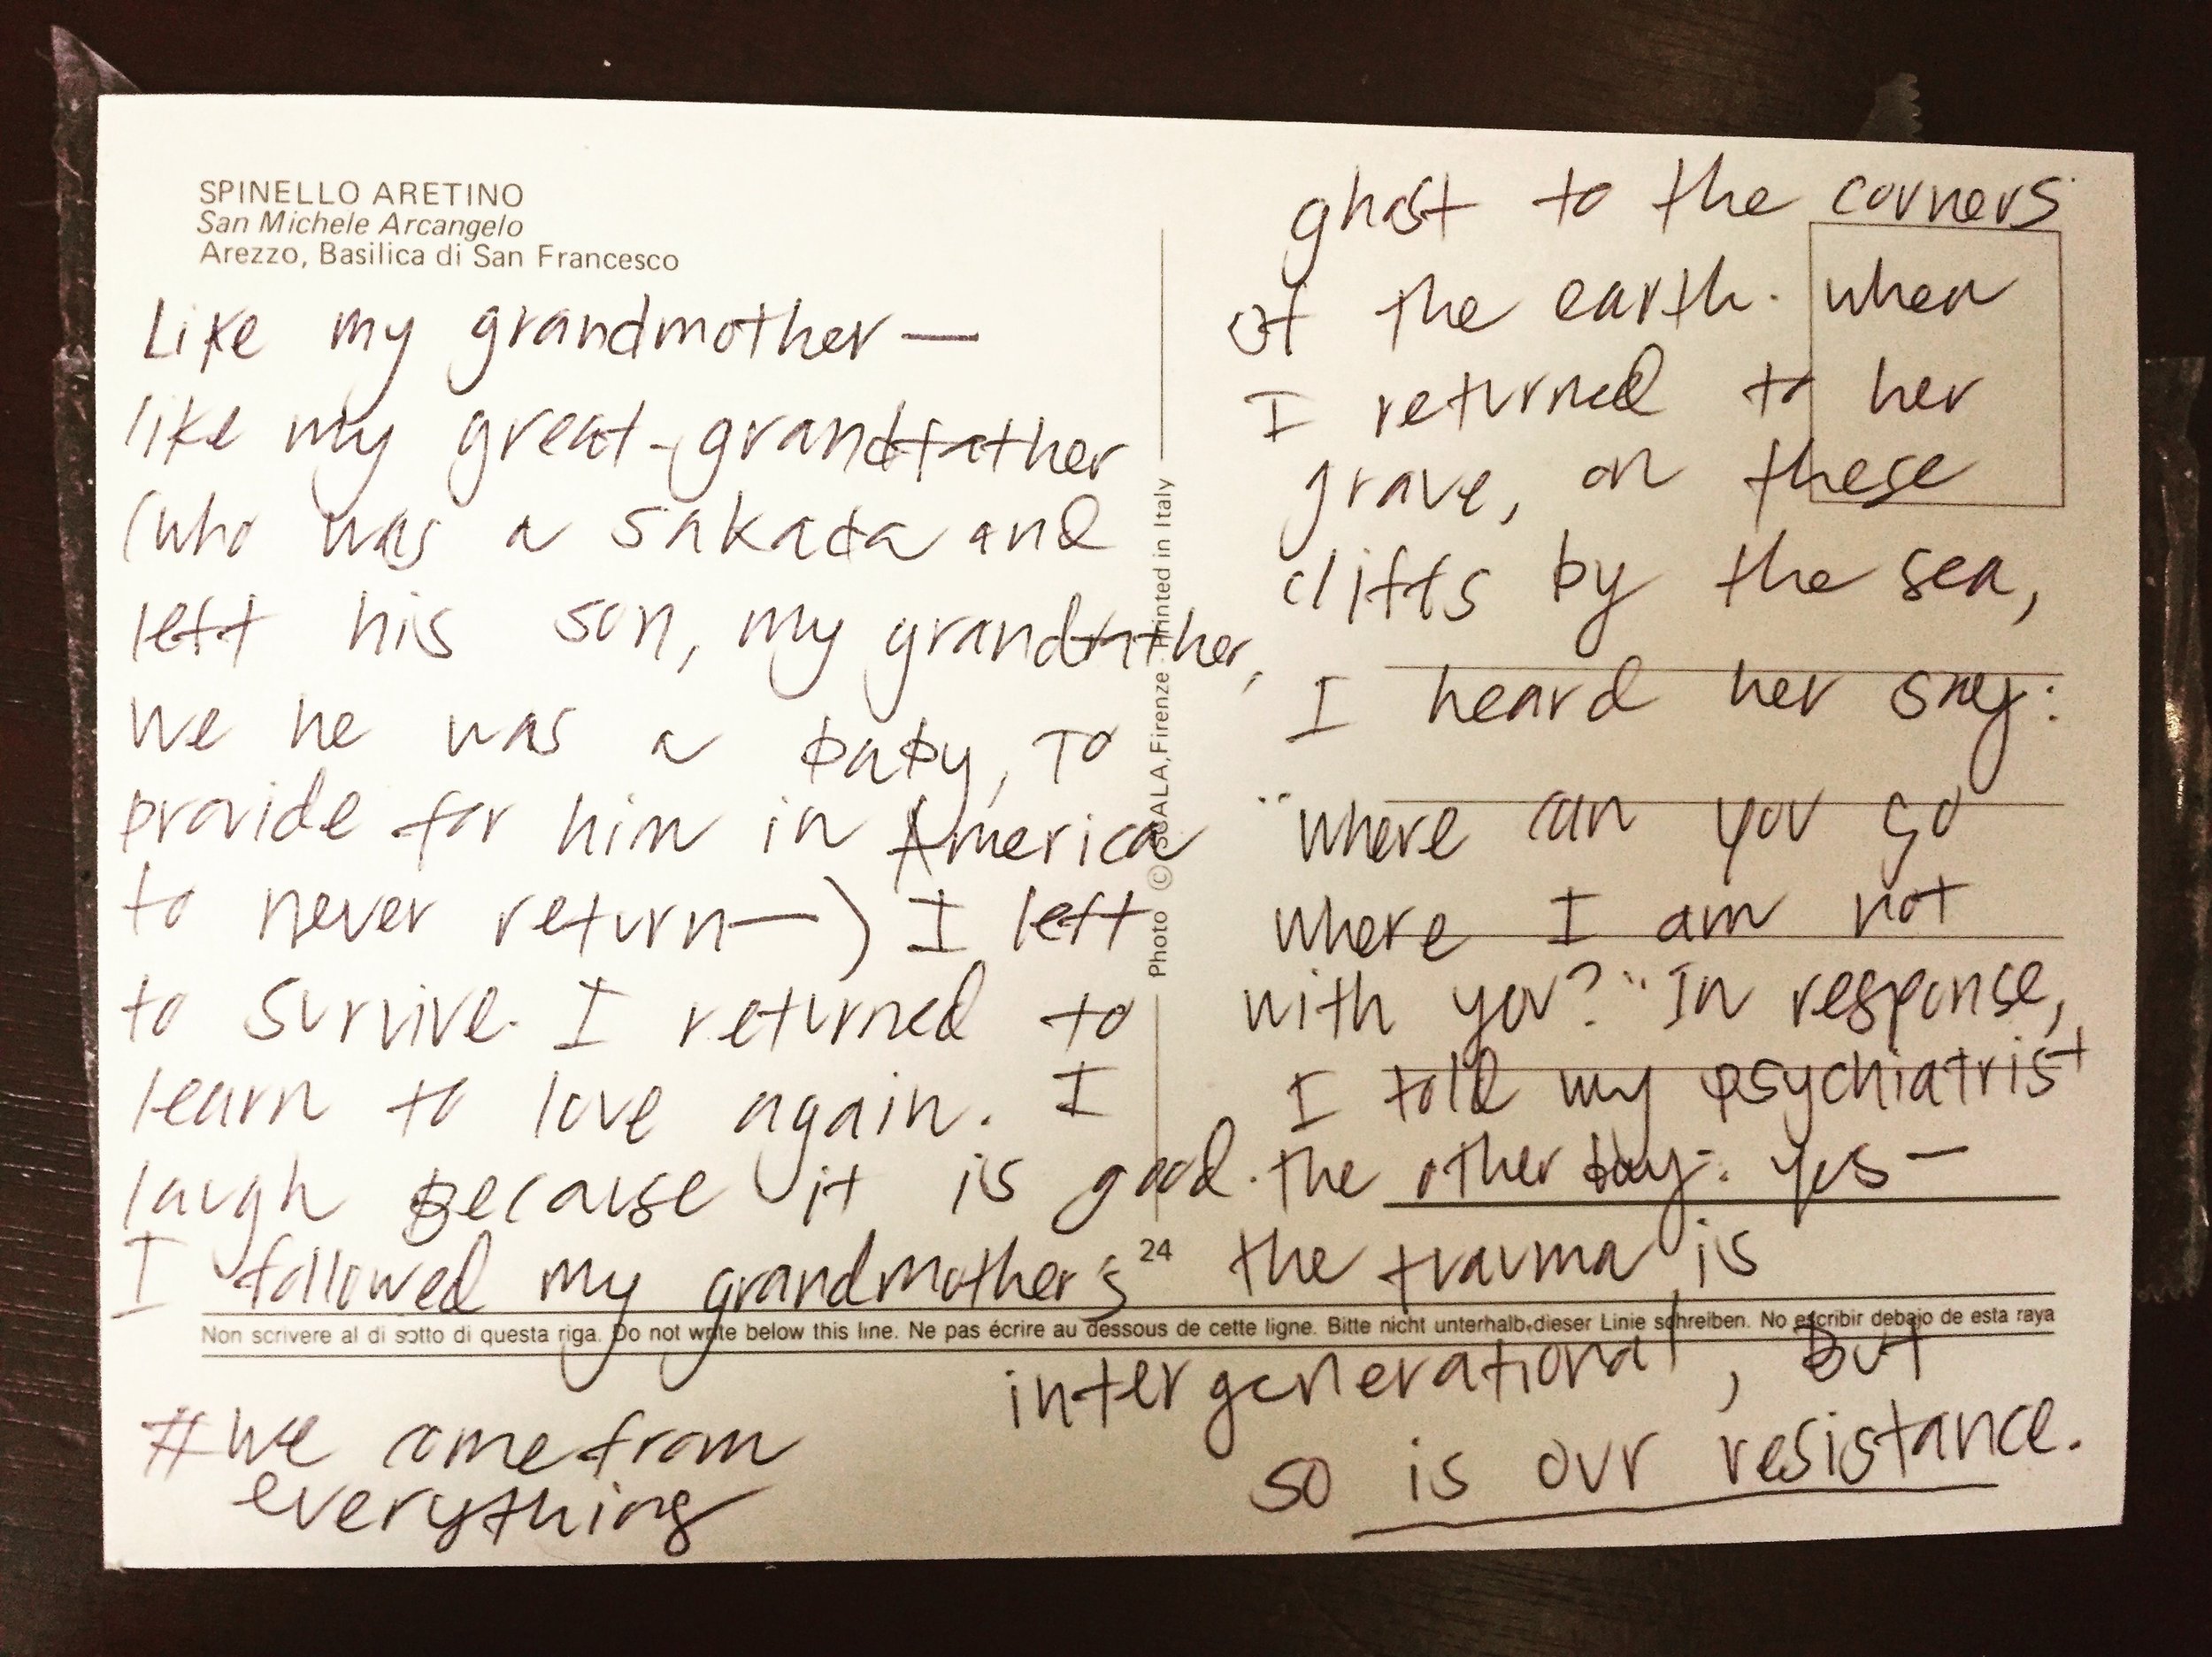 SPINELLO ARETINO
San Michele Arcangelo
Arezzo, Basilica di San Francesco
Like my grandmother—
like my great-grandfather
(who was a sakada and
left his son, my grandfather,
we he was a baby, to
provide for him in America
to never return—) I left
to survive. I returned to
learn to love again. I
laugh because it is good.
I followed my grandmother's
Photo © SCALA, Firenze. Printed in Italy
24
ghost to the corners
of the earth. when
I returned to her
grave, on these
cliffs by the sea,
I heard her say:
"where can you go
where I am not
with you?" In response,
I told my psychiatrist
the other day: yes—
the trauma is
Non scrivere al di sotto di questa riga. Do not write below this line. Ne pas écrire au dessous de cette ligne. Bitte nicht unterhalb dieser Linie schreiben. No escribir debajo de esta raya
intergenerational, but
so is our resistance.
#we come from
everything